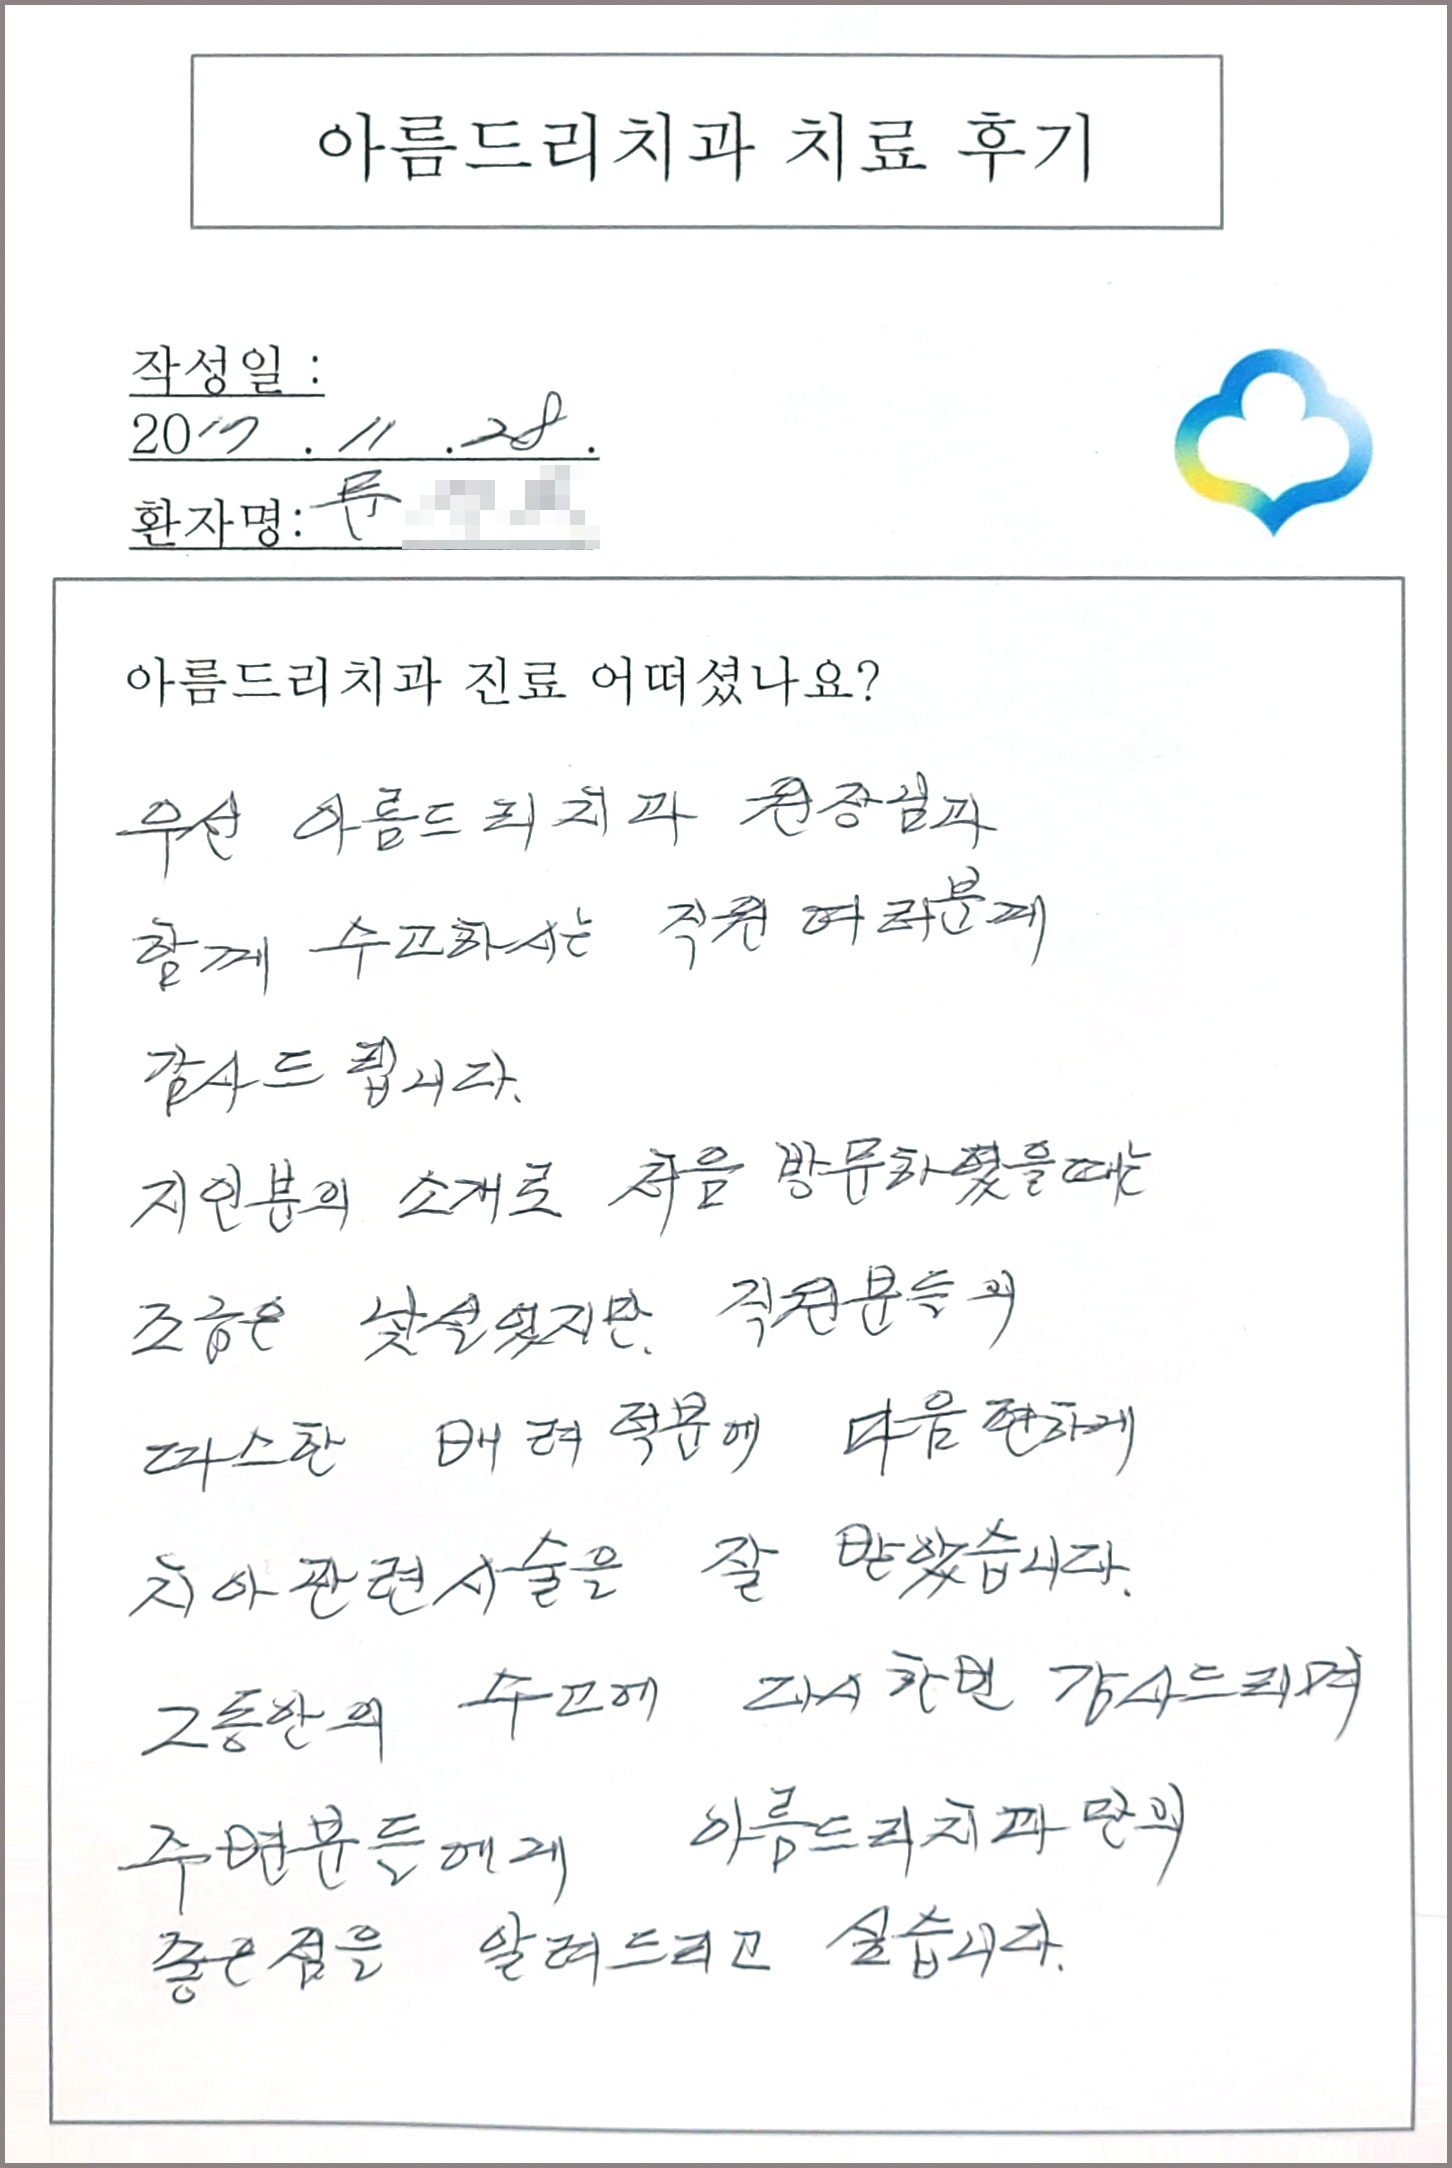 아름드리치과 치료 후기
작성일 :
2017 . 11 . 28 .
환자명: 문
아름드리치과 진료 어떠셨나요?
우선 아름드리치과 원장님과
함께 수고하시는 직원 여러분께
감사드립니다.
지인분의 소개로 처음 방문하였을때는
조금은 낯설었지만. 직원분들의
따스한 배려 덕분에 마음편하게
치아관련시술을 잘 받았습니다.
그동안의 수고에 다시한번 감사드리며
주변분들에게 아름드리치과만의
좋은점을 알려드리고 싶습니다.